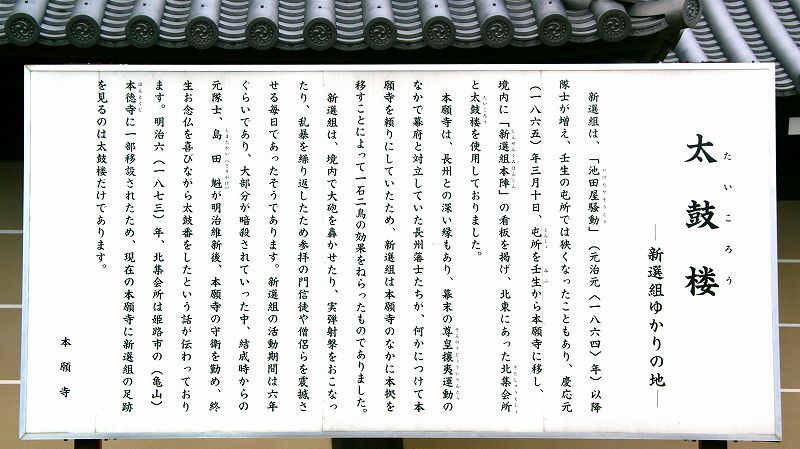 太鼓楼
たいころう
―新選組ゆかりの地―
新選組は、「池田屋騒動」(元治元〈一八六四〉年)以降
隊士が増え、壬生の屯所では狭くなったこともあり、慶応元
(一八六五)年三月十日、屯所を壬生から本願寺に移し、
境内に「新選組本陣」の看板を掲げ、北東にあった北集会所
と太鼓楼を使用しておりました。
本願寺は、長州との深い縁もあり、幕末の尊皇攘夷運動の
なかで幕府と対立していた長州藩士たちが、何かにつけて本
願寺を頼りにしていたため、新選組は本願寺のなかに本拠を
移すことによって一石二鳥の効果をねらったものでありました。
新選組は、境内で大砲を轟かせたり、実弾射撃をおこなっ
たり、乱暴を繰り返したため参拝の門信徒や僧侶らを震撼さ
せる毎日であったそうであります。新選組の活動期間は六年
ぐらいであり、大部分が暗殺されていった中、結成時からの
元隊士、島田魁が明治維新後、本願寺の守衛を勤め、終
生お念仏を喜びながら太鼓番をしたという話が伝わっており
ます。明治六(一八七三)年、北集会所は姫路市の(亀山)
本徳寺に一部移設されたため、現在の本願寺に新選組の足跡
を見るのは太鼓楼だけであります。
本願寺